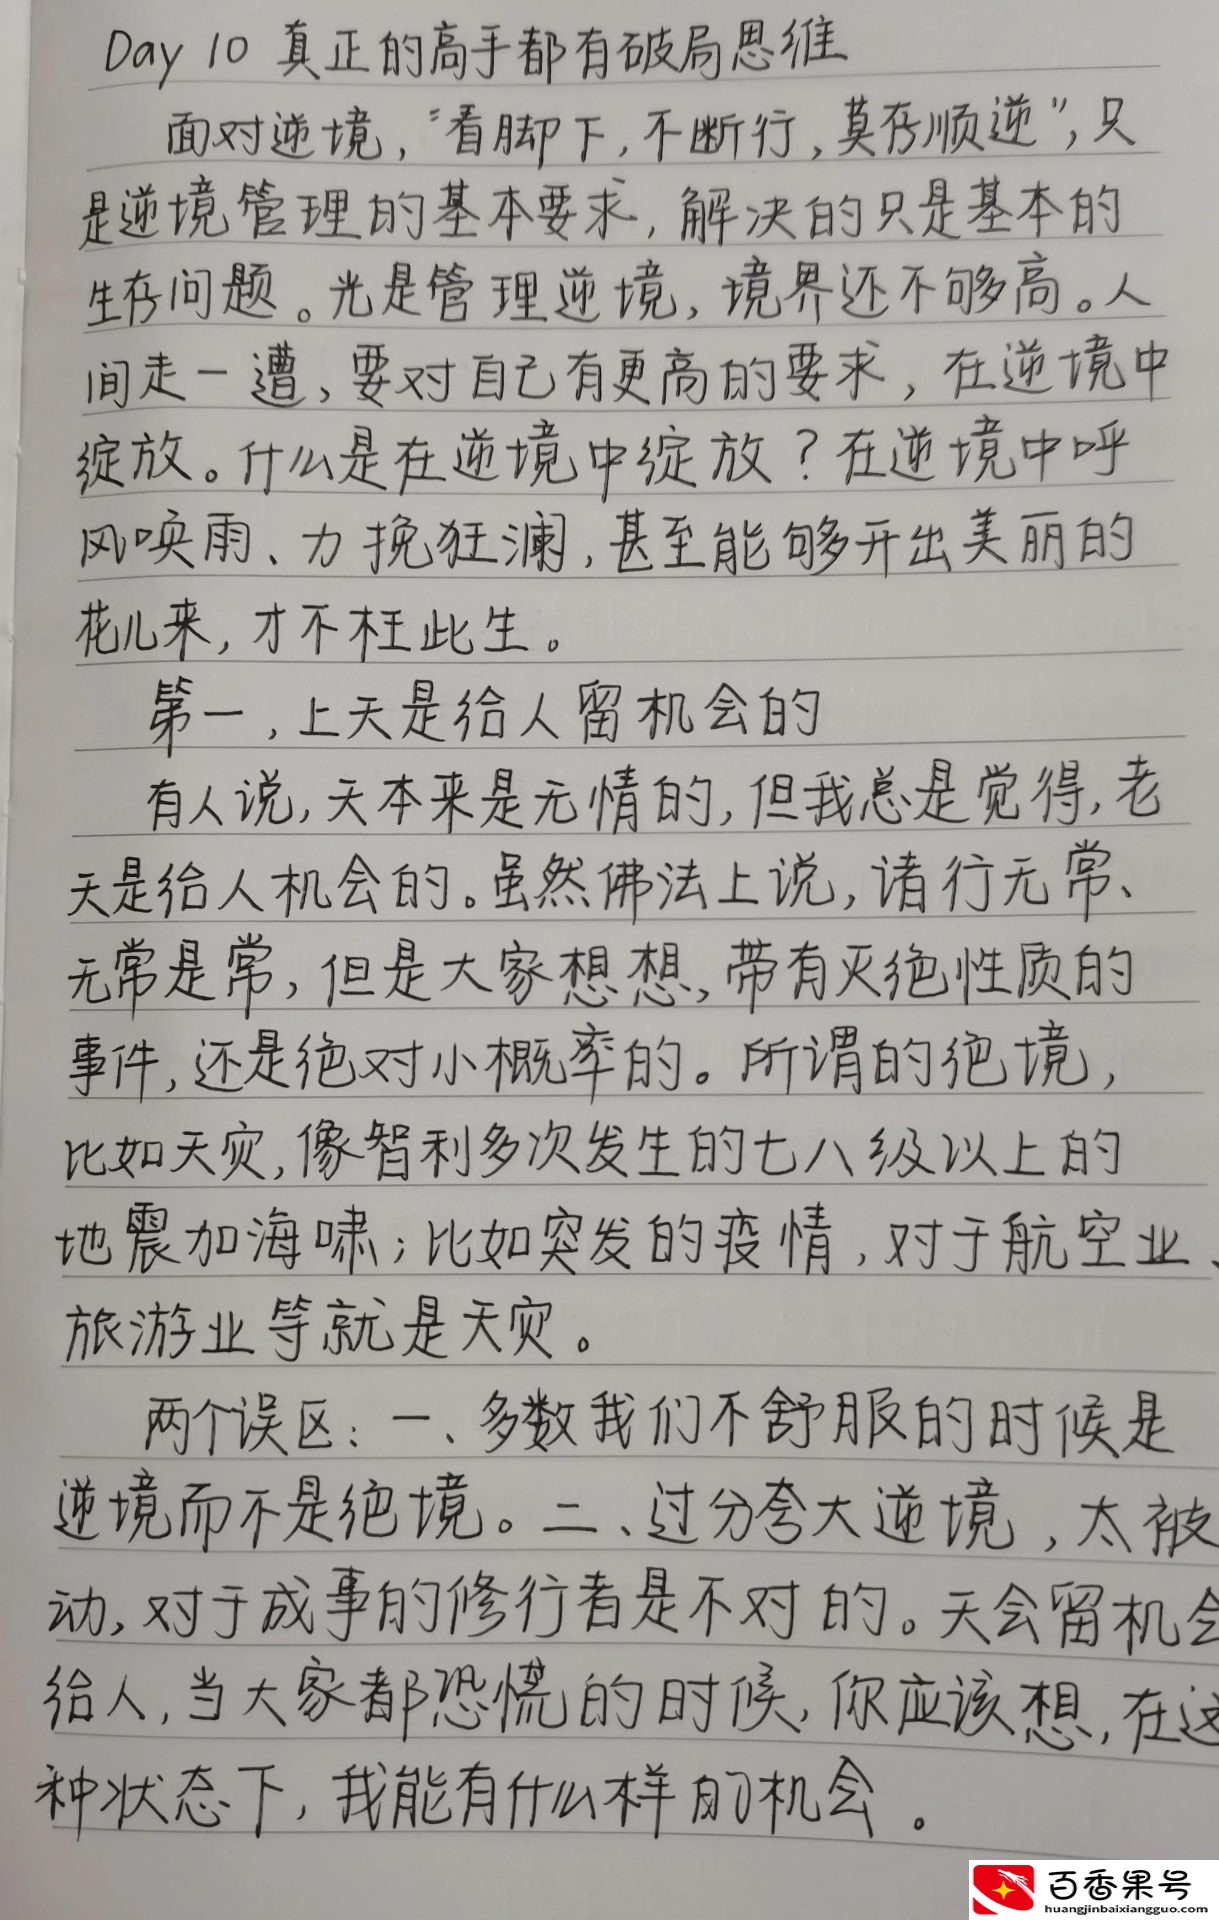 Day 10 真正的高手都有破局思维
面对逆境,“看脚下,不断行,莫存顺逆”,只
是逆境管理的基本要求,解决的只是基本的
生存问题。光是管理逆境,境界还不够高。人
间走一遭,要对自己有更高的要求,在逆境中
绽放。什么是在逆境中绽放?在逆境中呼
风唤雨、力挽狂澜,甚至能够开出美丽的
花儿来,才不枉此生。
第一,上天是给人留机会的
有人说,天本来是无情的,但我总是觉得,老
天是给人机会的。虽然佛法上说,诸行无常、
无常是常,但是大家想想,带有灭绝性质的
事件,还是绝对小概率的。所谓的绝境,
比如天灾,像智利多次发生的七八级以上的
地震加海啸;比如突发的疫情,对于航空业、
旅游业等就是天灾。
两个误区:一、多数我们不舒服的时候是
逆境而不是绝境。二、过分夸大逆境,太被
动,对于成事的修行者是不对的。天会留机会
给人,当大家都恐慌的时候,你应该想,在这
种状态下,我能有什么样的机会。
百香果号
huangjinbaixiangguo.com